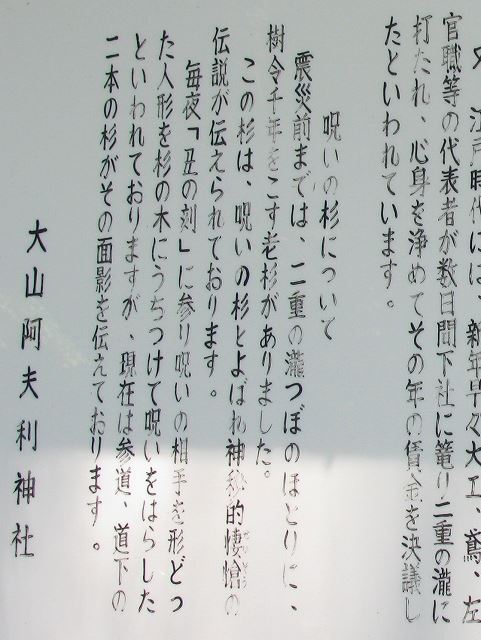 又、江戸時代には、新年早々大工、鳶、左
官職等の代表者が数日間下社に篭り二重の瀧に
打たれ、心身を浄めてその年の賃金を決議し
たといわれています。
呪いの杉について
震災前までは、二重の瀧つぼのほとりに、
樹令千年をこす老杉がありました。
この杉は、呪いの杉とよばれ神秘的悽愴の
伝説が伝えられております。
毎夜「丑の刻」に参り呪いの相手を形どっ
た人形を杉の木にうちつけて呪いをはらした
といわれておりますが、現在は参道、道下の
二本の杉がその面影を伝えております。
大山阿夫利神社